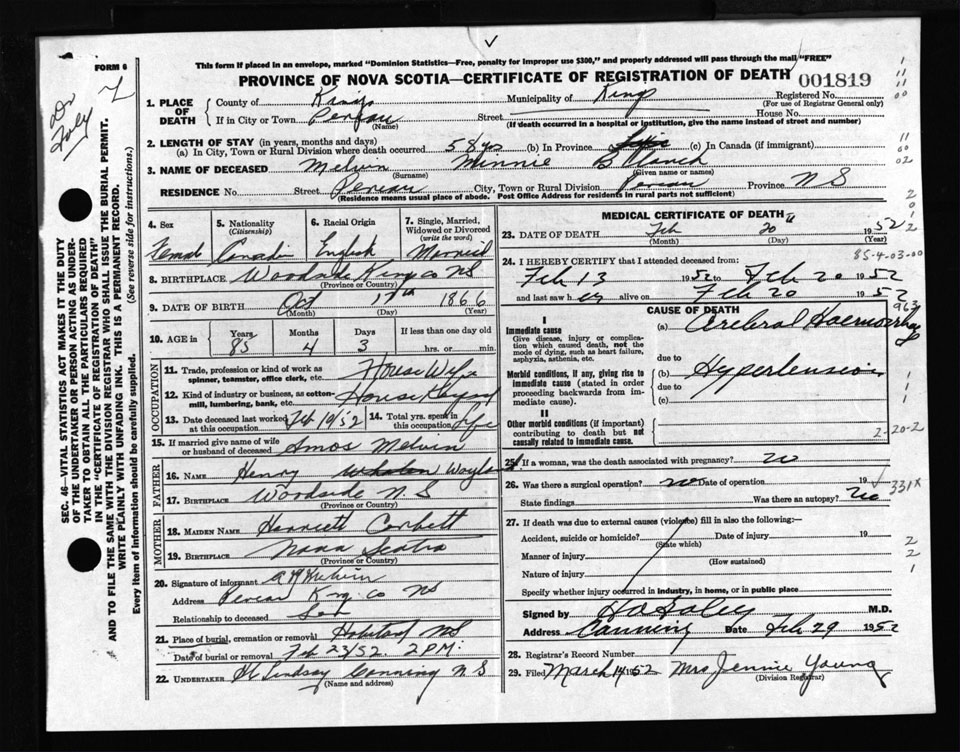 FORM 6
This form if placed in an envelope, marked "Dominion Statistics—Free, penalty for improper use $300," and properly addressed will pass through the mail "FREE"
PROVINCE OF NOVA SCOTIA—CERTIFICATE OF REGISTRATION OF DEATH
001819
Dr Foley
1. PLACE OF DEATH
County of Kings Municipality of Kings Registered No.
(For use of Registrar General only)
If in City or Town Pereau Street House No.
(Name) (If death occurred in a hospital or institution, give the name instead of street and number)
2. LENGTH OF STAY (in years, months and days)
(a) In City, Town or Rural Division where death occurred 58 yrs (b) In Province Life (c) In Canada (if immigrant)
3. NAME OF DECEASED Melvin Minnie Blanch
(Surname) (Given name or names)
RESIDENCE No Street Pereau City, Town or Rural Division Pereau Province N S
(Residence means usual place of abode. Post Office Address for residents in rural parts not sufficient)
4. Sex Female
5. Nationality (Citizenship) Canadian
6. Racial Origin English
7. Single, Married, Widowed or Divorced (write the word) Married
8. BIRTHPLACE Woodside Kings co NS
(Province or Country)
9. DATE OF BIRTH Oct 17th 1866
(Month) (Day) (Year)
10. AGE in Years 85 Months 4 Days 3 If less than one day old hrs. or min.
OCCUPATION
11. Trade, profession or kind of work as spinner, teamster, office clerk, etc. House Wife
12. Kind of industry or business, as cotton-mill, lumbering, bank, etc. House Keeping
13. Date deceased last worked at this occupation Feb 19/52
14. Total yrs. spent in this occupation Life
15. If married give name of wife or husband of deceased Amos Melvin
FATHER
16. NAME Henry Woyland
17. BIRTHPLACE Woodside N.S
(Province or Country)
MOTHER
18. MAIDEN NAME Harriett Corbett
19. BIRTHPLACE Nova Scotia
(Province or Country)
20. Signature of informant A M Melvin
Address Pereau King. co NS
Relationship to deceased Son
21. Place of burial, cremation or removal NS
Date of burial or removal Feb 23/52. 2 PM.
22. UNDERTAKER Lindsay Canning N S
(Name and address)
MEDICAL CERTIFICATE OF DEATH
23. DATE OF DEATH Feb 20 1952
(Month) (Day) (Year)
85-4-03-00
24. I HEREBY CERTIFY that I attended deceased from:
Feb 13 1952 to Feb 20 1952
and last saw her alive on Feb 20 1952
CAUSE OF DEATH
I
Immediate cause
Give disease, injury or complication which caused death, not the mode of dying, such as heart failure, asphyxia, asthenia, etc.
(a) Cerebral Haemorrhage
due to
Morbid conditions, if any, giving rise to immediate cause (stated in order proceeding backwards from immediate cause).
(b) Hypertension
due to
(c)
II
Other morbid conditions (if important) contributing to death but not causally related to immediate cause.
2-20-2
25. If a woman, was the death associated with pregnancy? no
26. Was there a surgical operation? no Date of operation 19
State findings Was there an autopsy? no
331x
27. If death was due to external causes (violence) fill in also the following:—
Accident, suicide or homicide? Date of injury 19
(State which)
Manner of injury
(How sustained)
Nature of injury
Specify whether injury occurred in industry, in home, or in public place
Signed by H A Foley M.D.
Address Canning Date Feb 29 1952
28. Registrar's Record Number
29. Filed March 14 1952 Mrs Jennie Young
(Division Registrar)
SEC. 46—VITAL STATISTICS ACT MAKES IT THE DUTY OF THE UNDERTAKER OR PERSON ACTING AS UNDERTAKER TO OBTAIN ALL THE PARTICULARS REQUIRED IN THE "CERTIFICATE OF REGISTRATION OF DEATH" AND TO FILE THE SAME WITH THE DIVISION REGISTRAR WHO SHALL ISSUE THE BURIAL PERMIT.
WRITE PLAINLY WITH UNFADING INK. THIS IS A PERMANENT RECORD.
Every item of information should be carefully supplied. (See reverse side for instructions.)